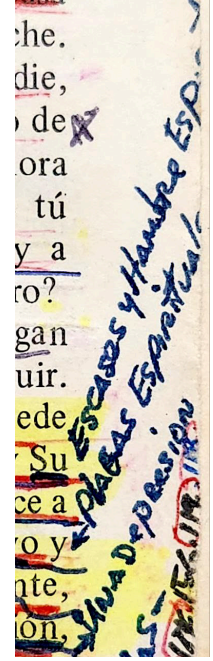 che.
die,
o de
ora
tú
y a
ro?
gan
uir.
ede
y Su
ce a
vo y
nte,
ión,
Escases y Hambre Esp
Plagas Espiritual
una Depresion
as-